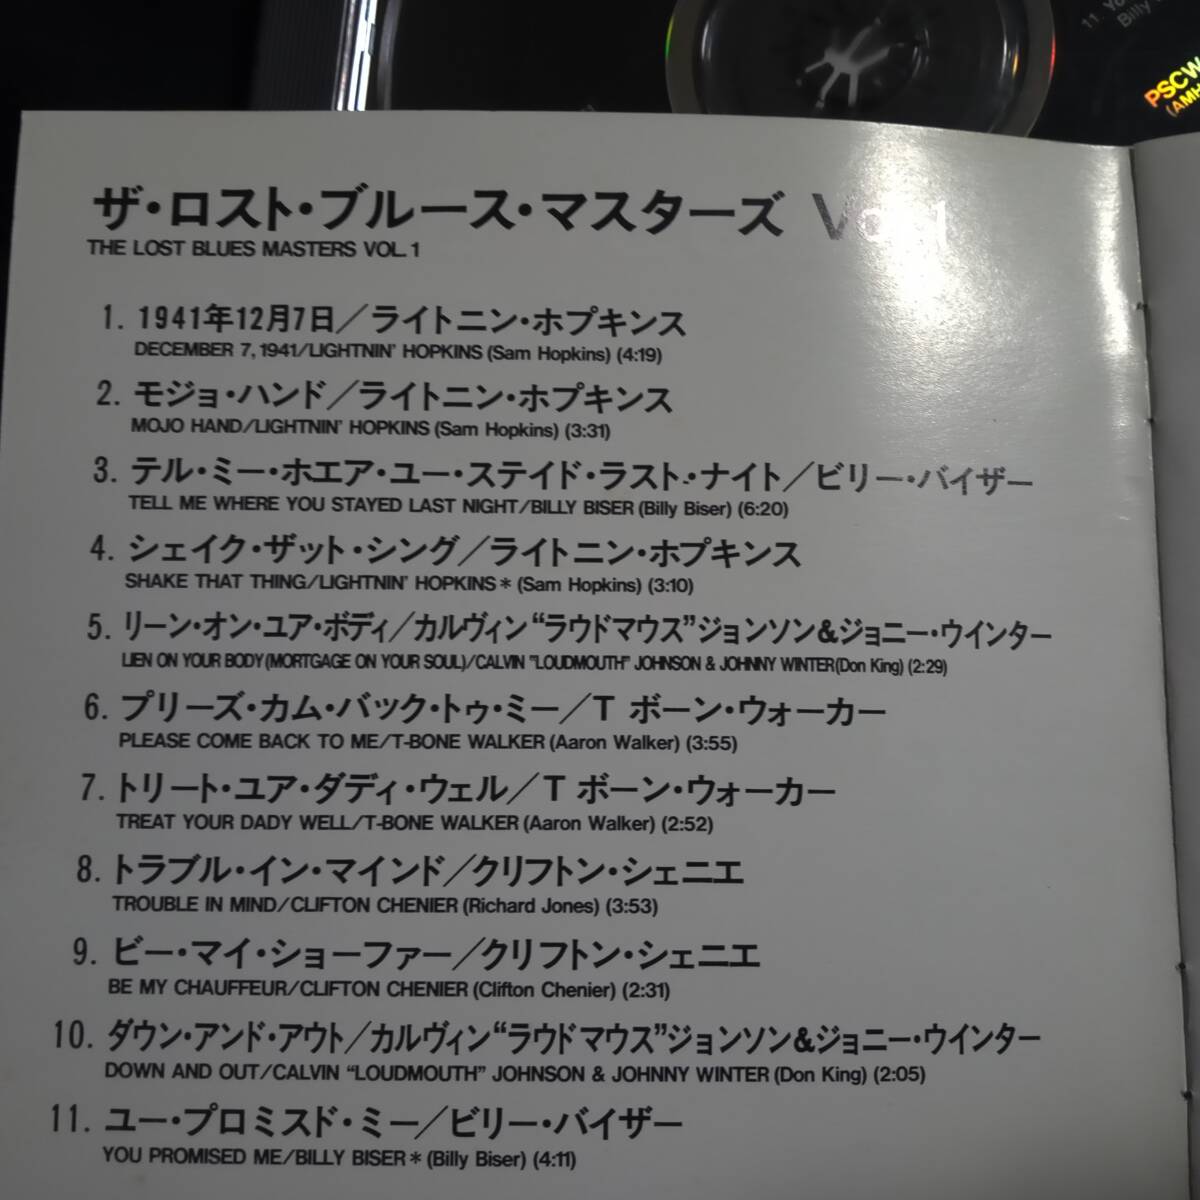 11. Yo
Billy
PSCW
(AMH
ザ・ロスト・ブルース・マスターズ Vol.1
THE LOST BLUES MASTERS VOL.1
1. 1941年12月7日／ライトニン・ホプキンス
DECEMBER 7, 1941/LIGHTNIN' HOPKINS (Sam Hopkins) (4:19)
2. モジョ・ハンド／ライトニン・ホプキンス
MOJO HAND/LIGHTNIN' HOPKINS (Sam Hopkins) (3:31)
3. テル・ミー・ホエア・ユー・ステイド・ラスト・ナイト／ビリー・バイザー
TELL ME WHERE YOU STAYED LAST NIGHT/BILLY BISER (Billy Biser) (6:20)
4. シェイク・ザット・シング／ライトニン・ホプキンス
SHAKE THAT THING/LIGHTNIN' HOPKINS＊(Sam Hopkins) (3:10)
5. リーン・オン・ユア・ボディ／カルヴィン“ラウドマウス”ジョンソン&ジョニー・ウインター
LIEN ON YOUR BODY(MORTGAGE ON YOUR SOUL)/CALVIN "LOUDMOUTH" JOHNSON & JOHNNY WINTER(Don King) (2:29)
6. プリーズ・カム・バック・トゥ・ミー／T ボーン・ウォーカー
PLEASE COME BACK TO ME/T-BONE WALKER (Aaron Walker) (3:55)
7. トリート・ユア・ダディ・ウェル／T ボーン・ウォーカー
TREAT YOUR DADY WELL/T-BONE WALKER (Aaron Walker) (2:52)
8. トラブル・イン・マインド／クリフトン・シェニエ
TROUBLE IN MIND/CLIFTON CHENIER (Richard Jones) (3:53)
9. ビー・マイ・ショーファー／クリフトン・シェニエ
BE MY CHAUFFEUR/CLIFTON CHENIER (Clifton Chenier) (2:31)
10. ダウン・アンド・アウト／カルヴィン“ラウドマウス”ジョンソン&ジョニー・ウインター
DOWN AND OUT/CALVIN “LOUDMOUTH” JOHNSON & JOHNNY WINTER (Don King) (2:05)
11. ユー・プロミスド・ミー／ビリー・バイザー
YOU PROMISED ME/BILLY BISER＊(Billy Biser) (4:11)